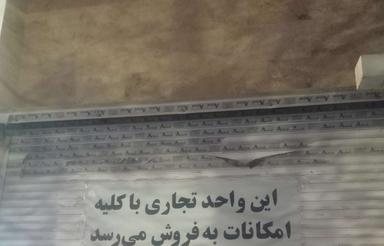 این واحد تجاری با کلیه
امکانات به فروش می‌رسد